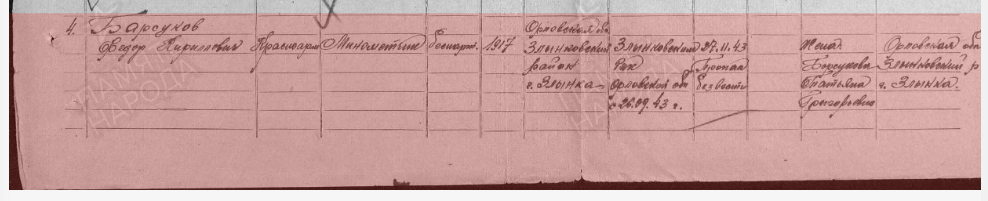 4. Барсуков
Федор Кириллович
Красноарм
Минометчик
беспарт.
1917
Орловская об
Злынковский
район
г. Злынка
Злынковский
Рвк
Орловской об
с 26.09.43 г.
27.11.43
Пропал
без вести
Жена
Барсукова
Татьяна
Григорьевна
Орловская об
Злынковский р
г. Злынка.
ПАМЯТЬ
НАРОДА